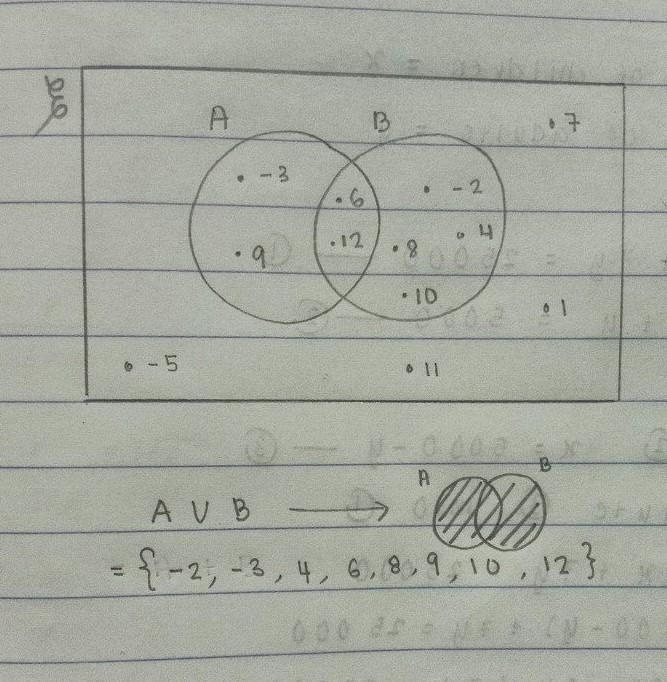 ξ
A B
. 7
. -3
. 6
. -2
. 9
. 12
. 8
. 4
. 10
. 1
. -5
. 11
A ∪ B ⟶ A B
= {-2, -3, 4, 6, 8, 9, 10, 12}